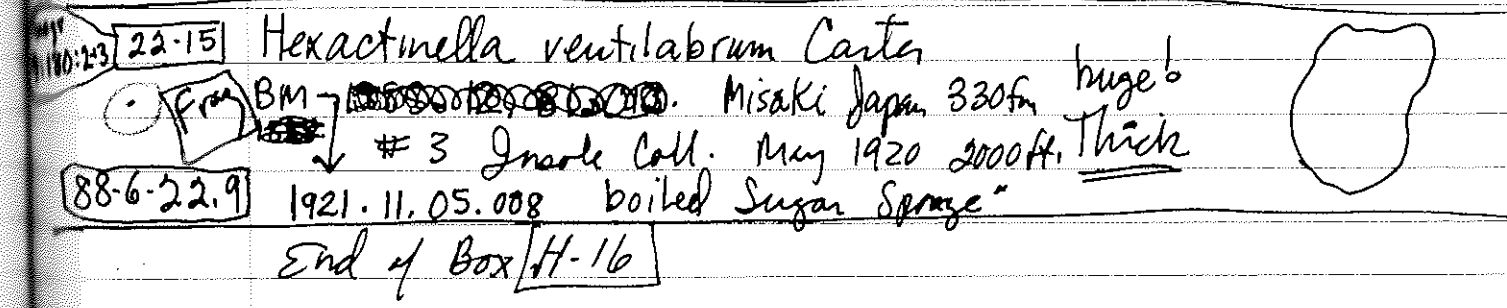 22-15 Hexactinella ventilabrum Carter
180:2-3
Frag BM Misaki Japan 330fm huge!
#3 Insole Coll. May 1920 2000ft. Thick
88-6-22.9 1921.11.05.008 boiled Sugar Sponge"
End of Box H-16